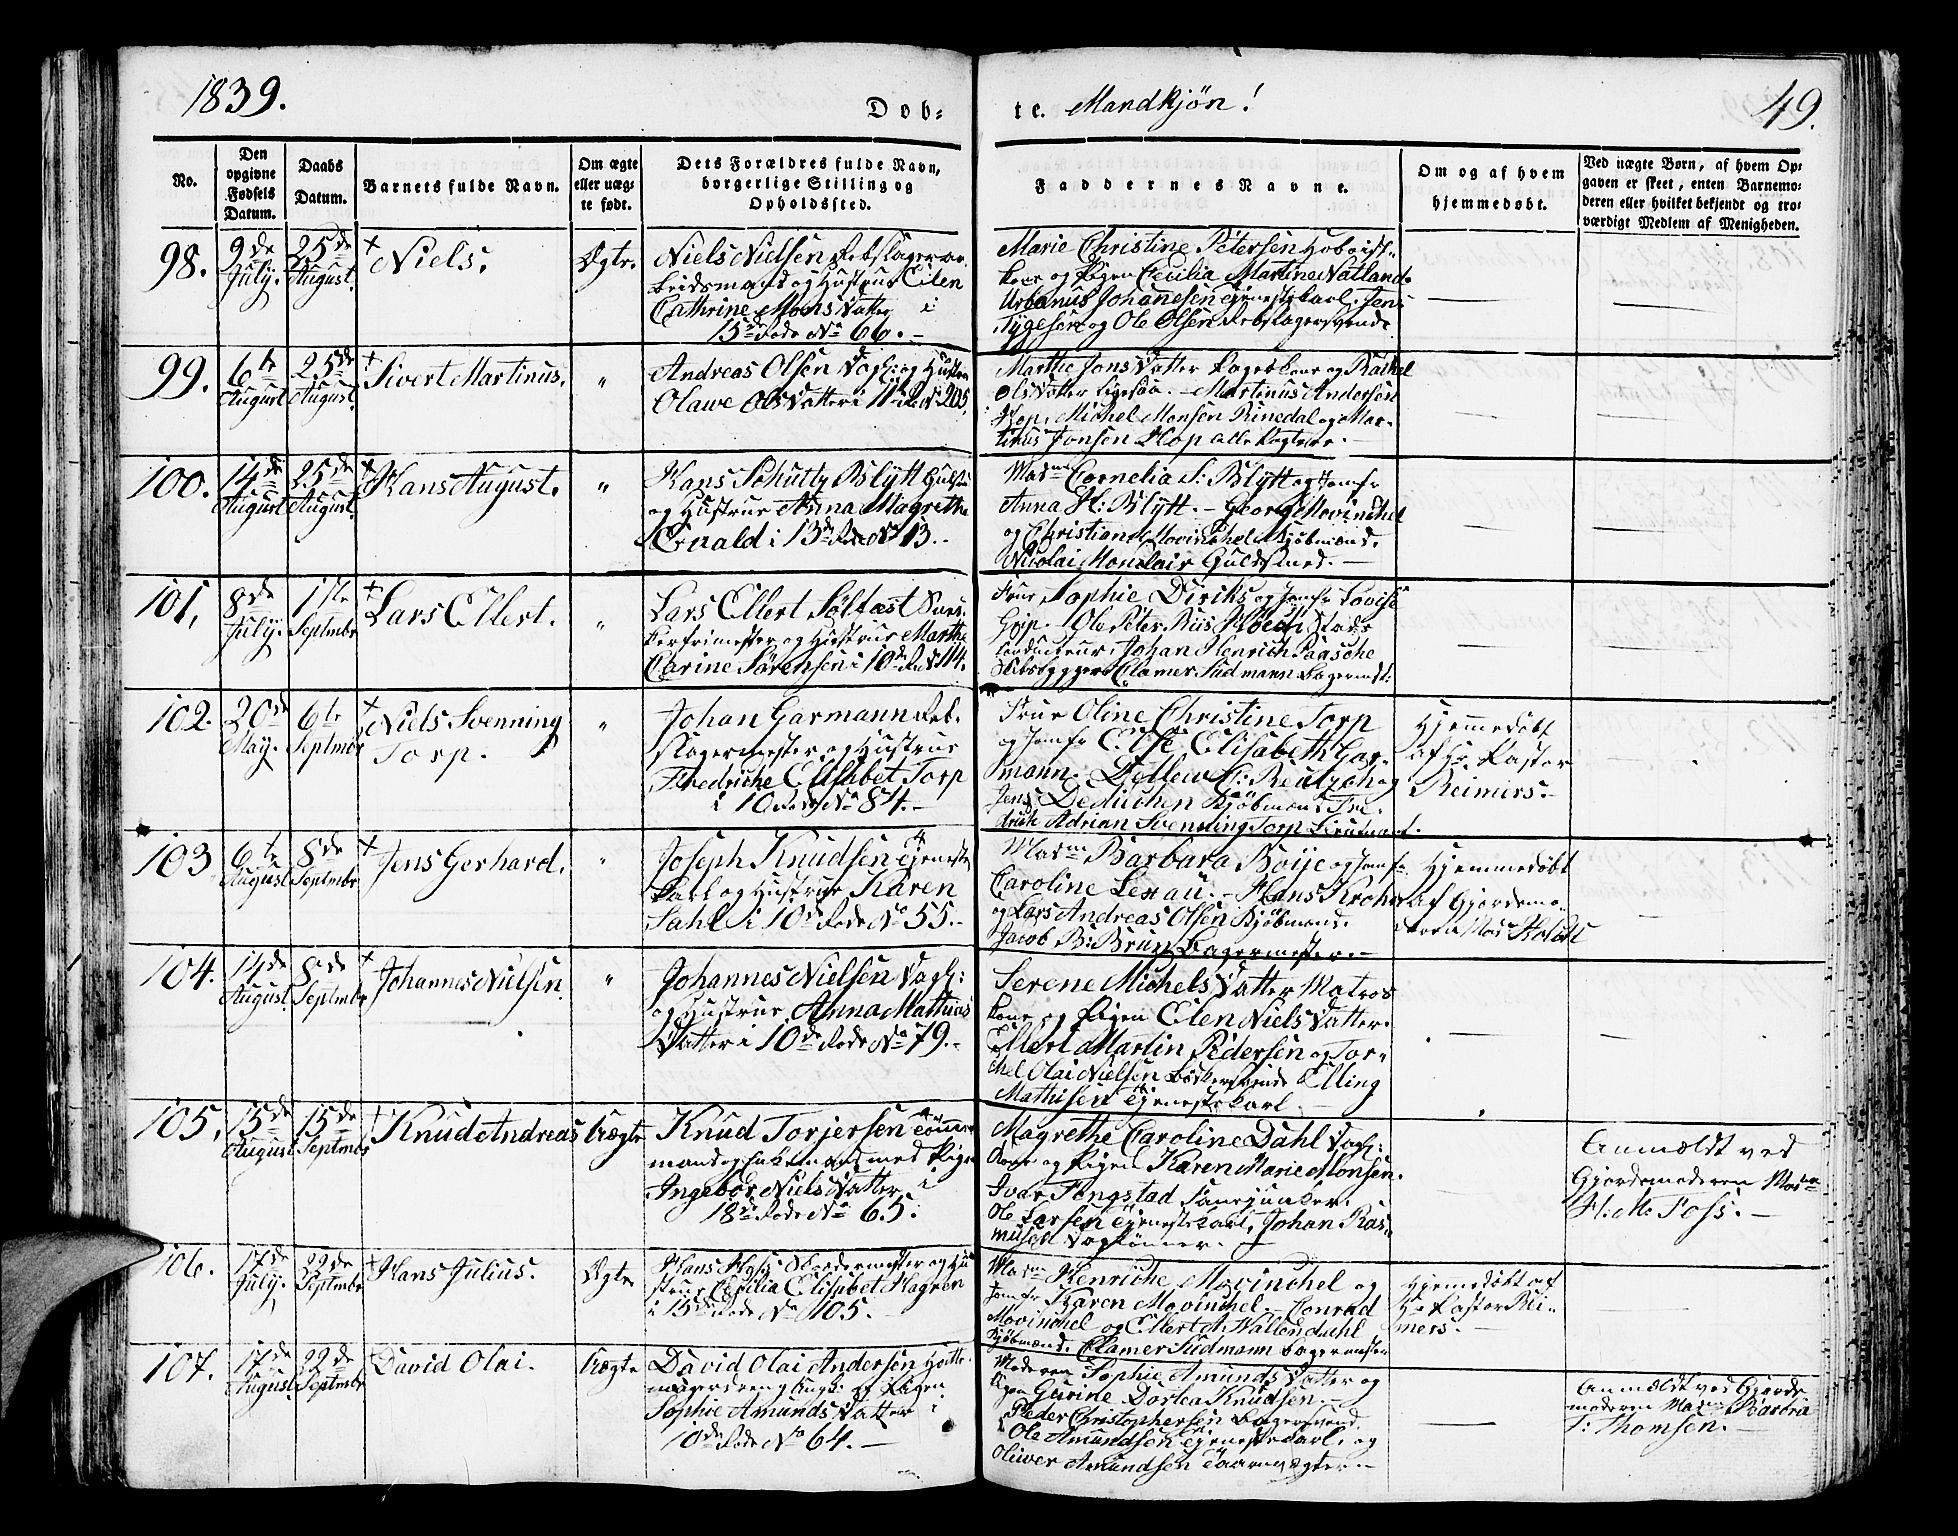 1839.
Dob=
te. Mandkjön!
49.
No.
Den opgivne Fødsels Datum.
Daabs Datum.
Barnets fulde Navn.
Om ægte eller uægte født.
Dets Forældres fulde Navn, borgerlige Stilling og Opholdssted.
Faddernes Navne.
Om og af hvem hjemmedøbt.
Ved uægte Børn, af hvem Opgaven er skeet, enten Barnemoderen eller hvilket bekjendt og troværdigt Medlem af Menigheden.
98. 9de July. 25de August. Niels. Ægte.
Niels Nielsen Rebslagerar-
beidsmand og Hustrue Elen
Cathrine Mons Datter i
15de Rode No 66.
Marie Christine Petersen
kone og Pigen Cecilia Martine Natland
Urbanus Johanesen Tjenestekarl. Jens
Tygesen og Ole Olsen Rebslagersvende
99. 6te August 25de August Sivert Martinus. "
Andreas Olsen Dagl: og Hustrue
Olawe Ols Datter i 11te R. No 205.
Marthe Jons Datter og Rachel
Ols Datter ligesaa. Martinus Andersen
Hop, Michel Monsen Rinedal og Mar-
tinus Jonsen Hop alle
100. 14de August 25de August Hans August. "
Hans Schutty Blytt
og Hustrue Anna Magrethe
i 13de Rode No 13.
Madme Cornelia S: Blytt og Jomfr
Anna H: Blytt. George Mowinchel
og Christian Mowinchel Kjøbmænd.
Nicolai Monclair Guldsmed.
101. 8de July. 1ste Septmbr Lars Ellert. "
Lars Ellert Söltæst
og Hustrue Marthe
Carine Sørensen i 10de Rode No 114.
Frue Sophie Diriks og Jomfr Lovise
Grip. Ole Peter Riis Høegh Stads
conducteur, Johan Henrich Paasche
Skibsbygger Clamer Südmann Bagermst:
102. 20de May. 6te Septmbr Niels Svenning Torp. "
Johan Garmann Reb-
slagermester og Hustrue
Fredriche Elisabet Torp
i 10 Rode No 84.
Frue Oline Christine Torp
og Jomfr Else Elisabeth Gar-
mann. Detlew C: Reutz og
Jens Dedichen Kjøbmænd. Fre-
drich Adrian Svenning Torp Lieutnant.
Hjemmedøbt
af Hr. Pastor
Reimers.
103 6te August 8de Septmbr Jens Gerhard. "
Joseph Knudsen Tjeneste
karl og Hustrue Karen
Dahl i 10de Rode No 55.
Madme Barbara Boije og Jomfr
Caroline Lexau. Hans Krohn
og Lars Andreas Olsen Kjøbmænd.
Jacob B: Brun Bagermester.
Hjemmedøbt
af Gjordemo-
deren Mad
104. 14de August 8de Septmbr Johannes Nielsen "
Johannes Nielsen Dagl:
og Hustrue Anna Mathias
Datter i 10de Rode No 79.
Serene Michels Datter Matros
kone og Pigen Elen Niels Datter.
Ellert Martin Pedersen og Tor-
chel Olai Nielsen Bødkersvende Elling
Mathisen Tjenestekarl.
105. 15de August 15de Septmbr Knud Andreas Uægte
Knud Torjersen
mand og med Pigen
Ingebor Niels Datter i
18de Rode No 65.
Magrethe Caroline Dahl Dagl:
kone og Pigen Karen Marie Monsen.
Ivar Tengstad Fanejunker
Ole Larsen Tjenestekarl, Johan Ras-
musen Dagl
Anmældt ved
Gjordemoderen Madme
H. M. Foss.
106. 17de July. 22de Septmbr Hans Julius. Ægte
Hans Skreddermester og Hu-
strue Cecilia Elisabet Hagren
i 15de Rode No 105.
Madme Henriche Mowinchel og
Jomfr Karen Mowinchel. Conrad
Mowinchel og Ellert A. Wallendahl
Kjøbmænd. Clamer Südmann Bagermester
Hjemmedøbt af
Hr. Pastor Rei-
mers.
107. 17de August 22de Septmbr David Olai. Uægte
David Olai Andersen
og Pigen
Sophie Amunds Datter i
10de Rode No 64.
Moderen Sophie Amunds Datter og
Pigen Gurine Dortea Knudsen.
Peder Christophersen Bagersvend
Ole Amundsen Tjenestekarl. og
Oliver Amundsen Taarnvægter
Anmældt ved Gjorde-
moderen Mad Barbra
T: Thomsen.